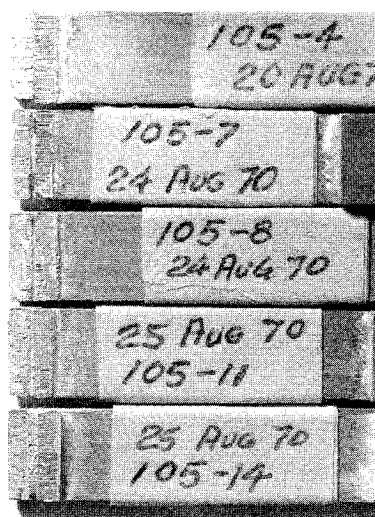 105-4
20 AUG 7
105-7
24 Aug 70
105-8
24 AUG 70
25 AUG 70
105-11
25 AUG 70
105-14